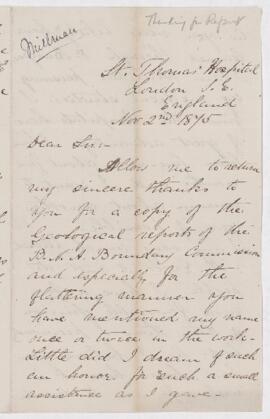 Millman
Thanking for Report
St. Thomas' Hospital
London S.E.
England
Nov 2nd 1875
Dear Sir—
Allow me to return
my sincere thanks to
you for a copy of the
Geological reports of the
B.N.A. Boundary Commission
and especially for the
flattering manner you
have mentioned my name
once or twice in the work—
Little did I dream of such
an honor for such a small
assistance as I gave—